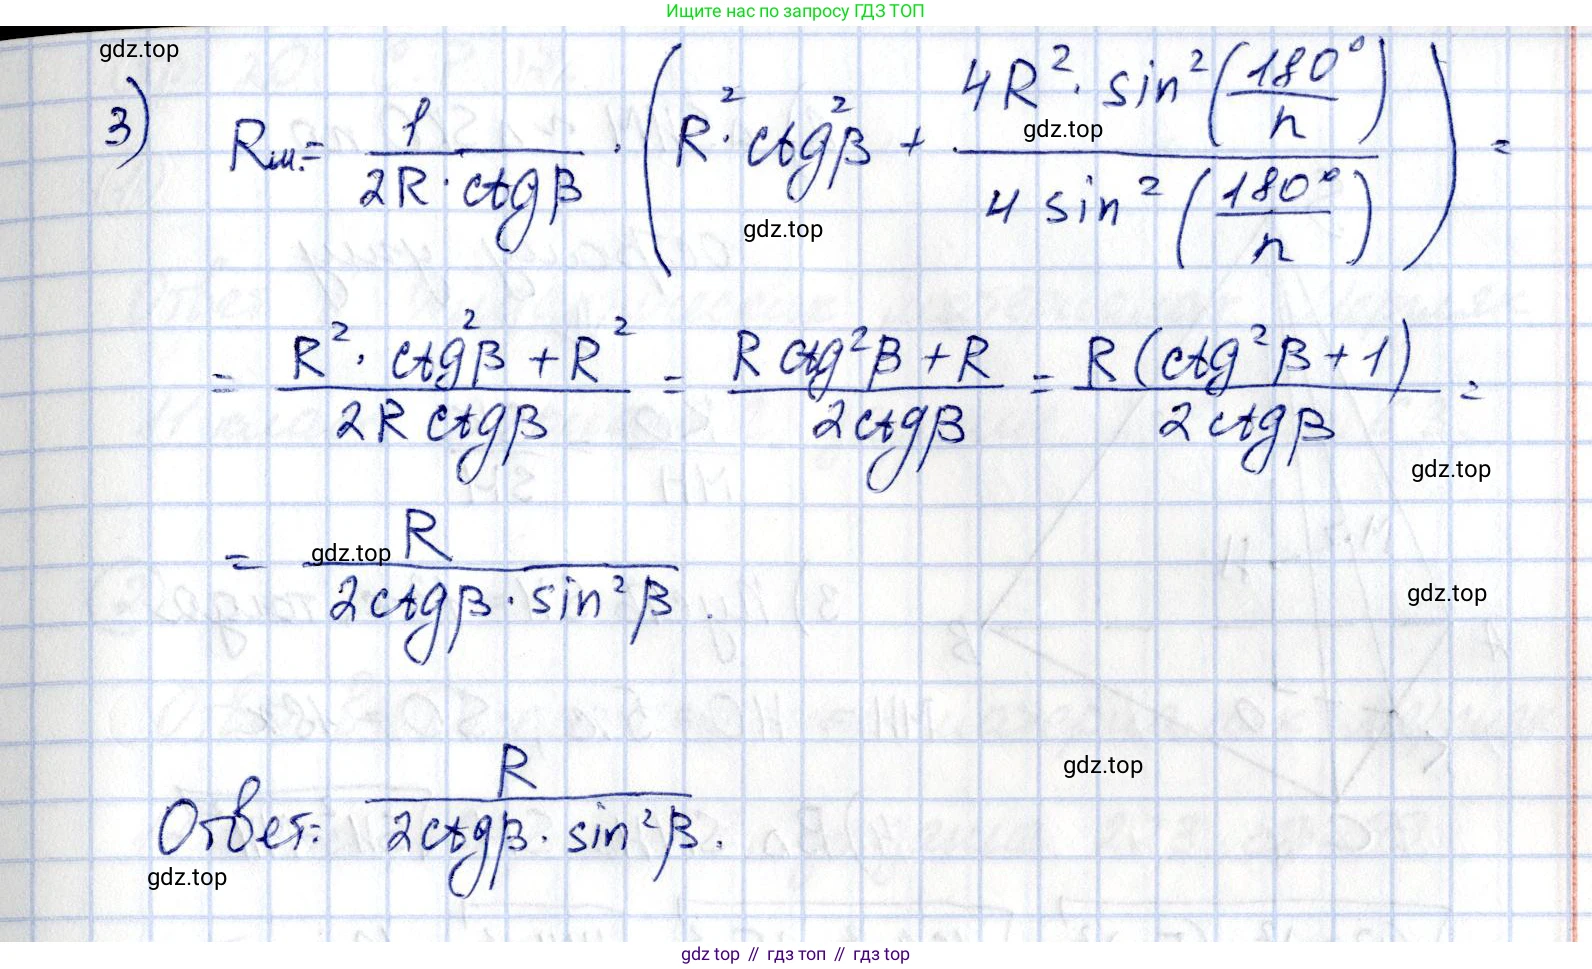 Ищите нас по запросу ГДЗ ТОП
gdz.top
3) Rш. = 1 / (2R · ctgβ) · (R² · ctg²β + (4R² · sin²(180°/n)) / (4 sin²(180°/n))) =
gdz.top
gdz.top
= (R² · ctg²β + R²) / (2R ctgβ) = (R ctg²β + R) / (2ctgβ) = (R(ctg²β + 1)) / (2ctgβ) =
gdz.top
= R / (2ctgβ · sin²β).
gdz.top
gdz.top
Ответ: R / (2ctgβ · sin²β).
gdz.top
gdz.top
gdz top // гдз топ // gdz top